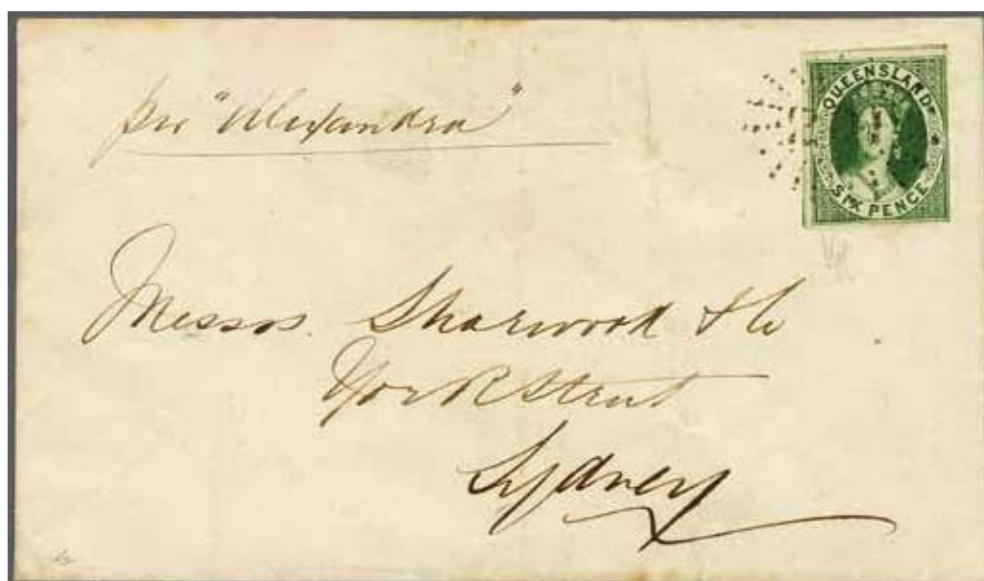 per "Alexandra"
QUEENSLAND
SIX PENCE
Messrs. Sharwood & Co
York Street
Sydney